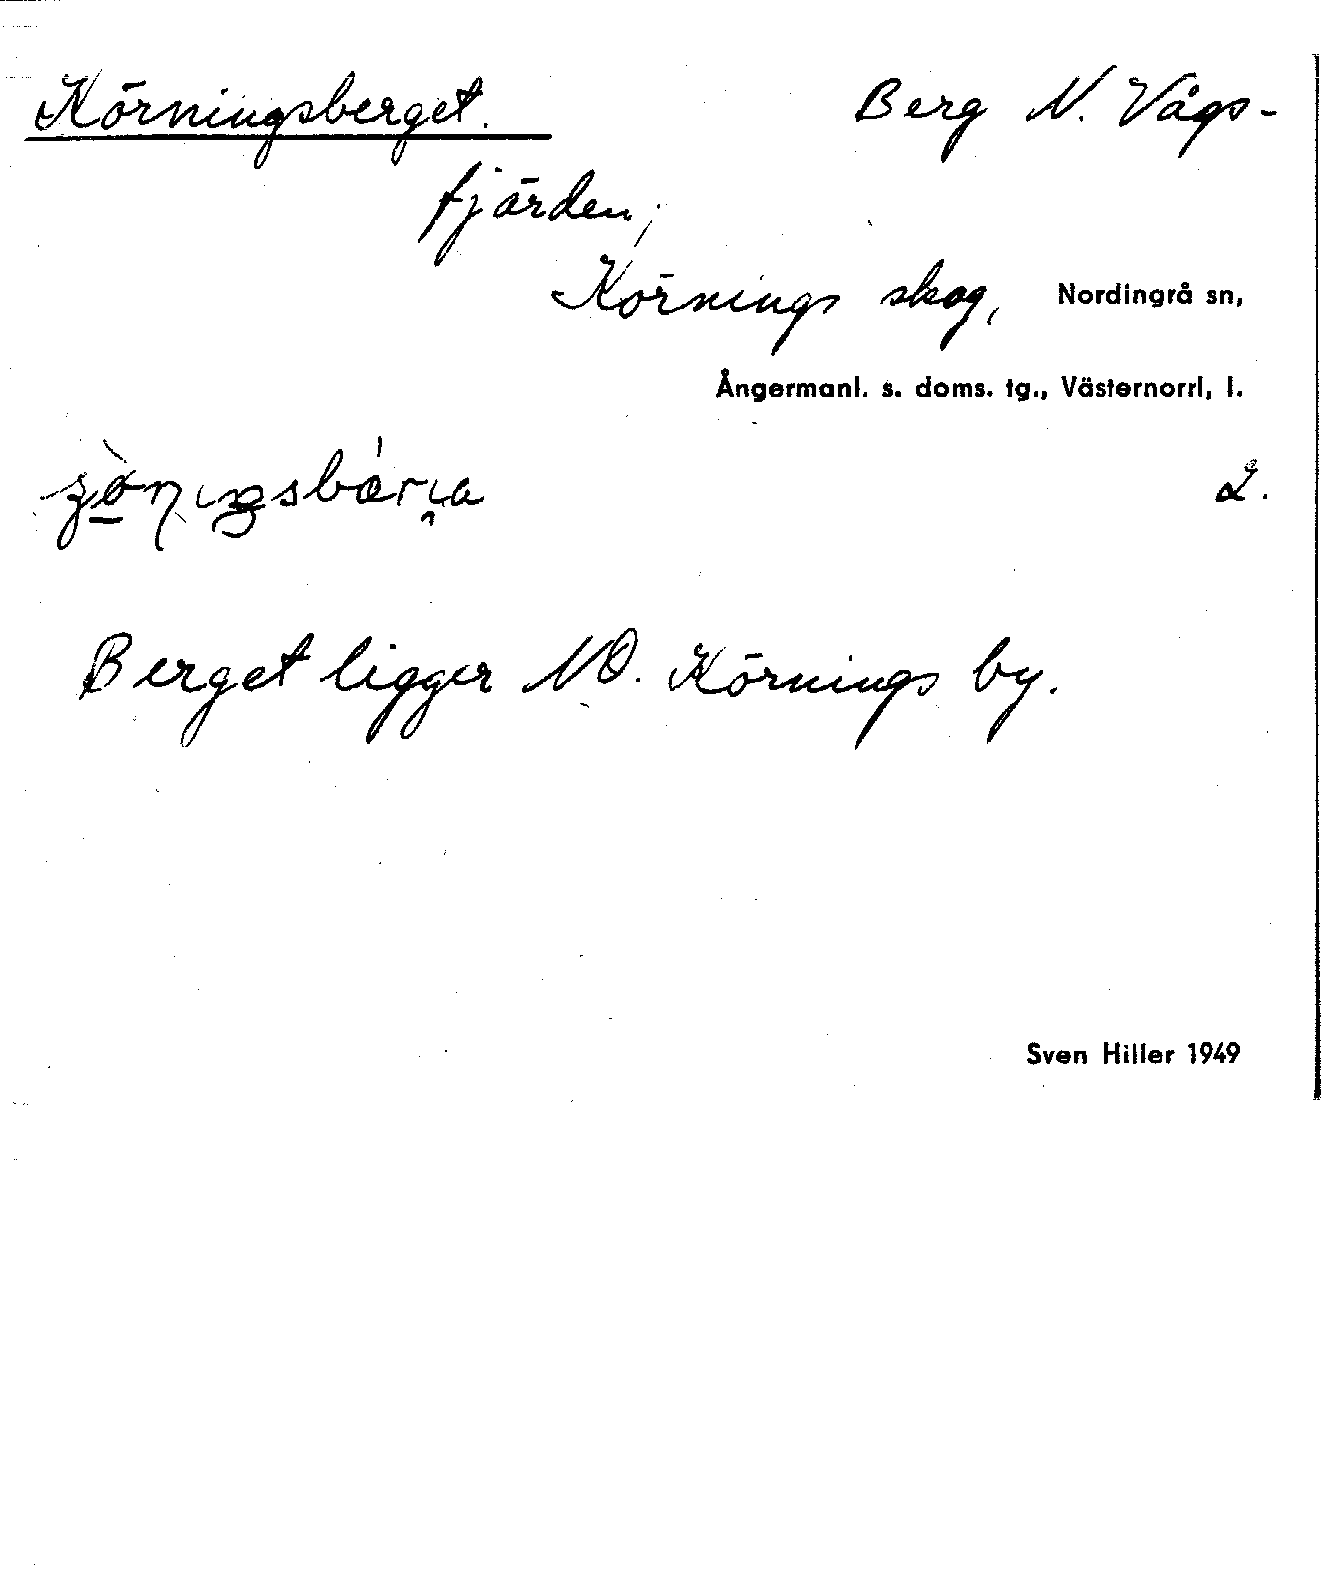 Körningsberget. Berg N. Vågs-
fjärden;
Körnings skog, Nordingrå sn,
Ångermanl. s. doms. tg., Västernorrl, l.
2.
Berget ligger NO. Körnings by.
Sven Hiller 1949